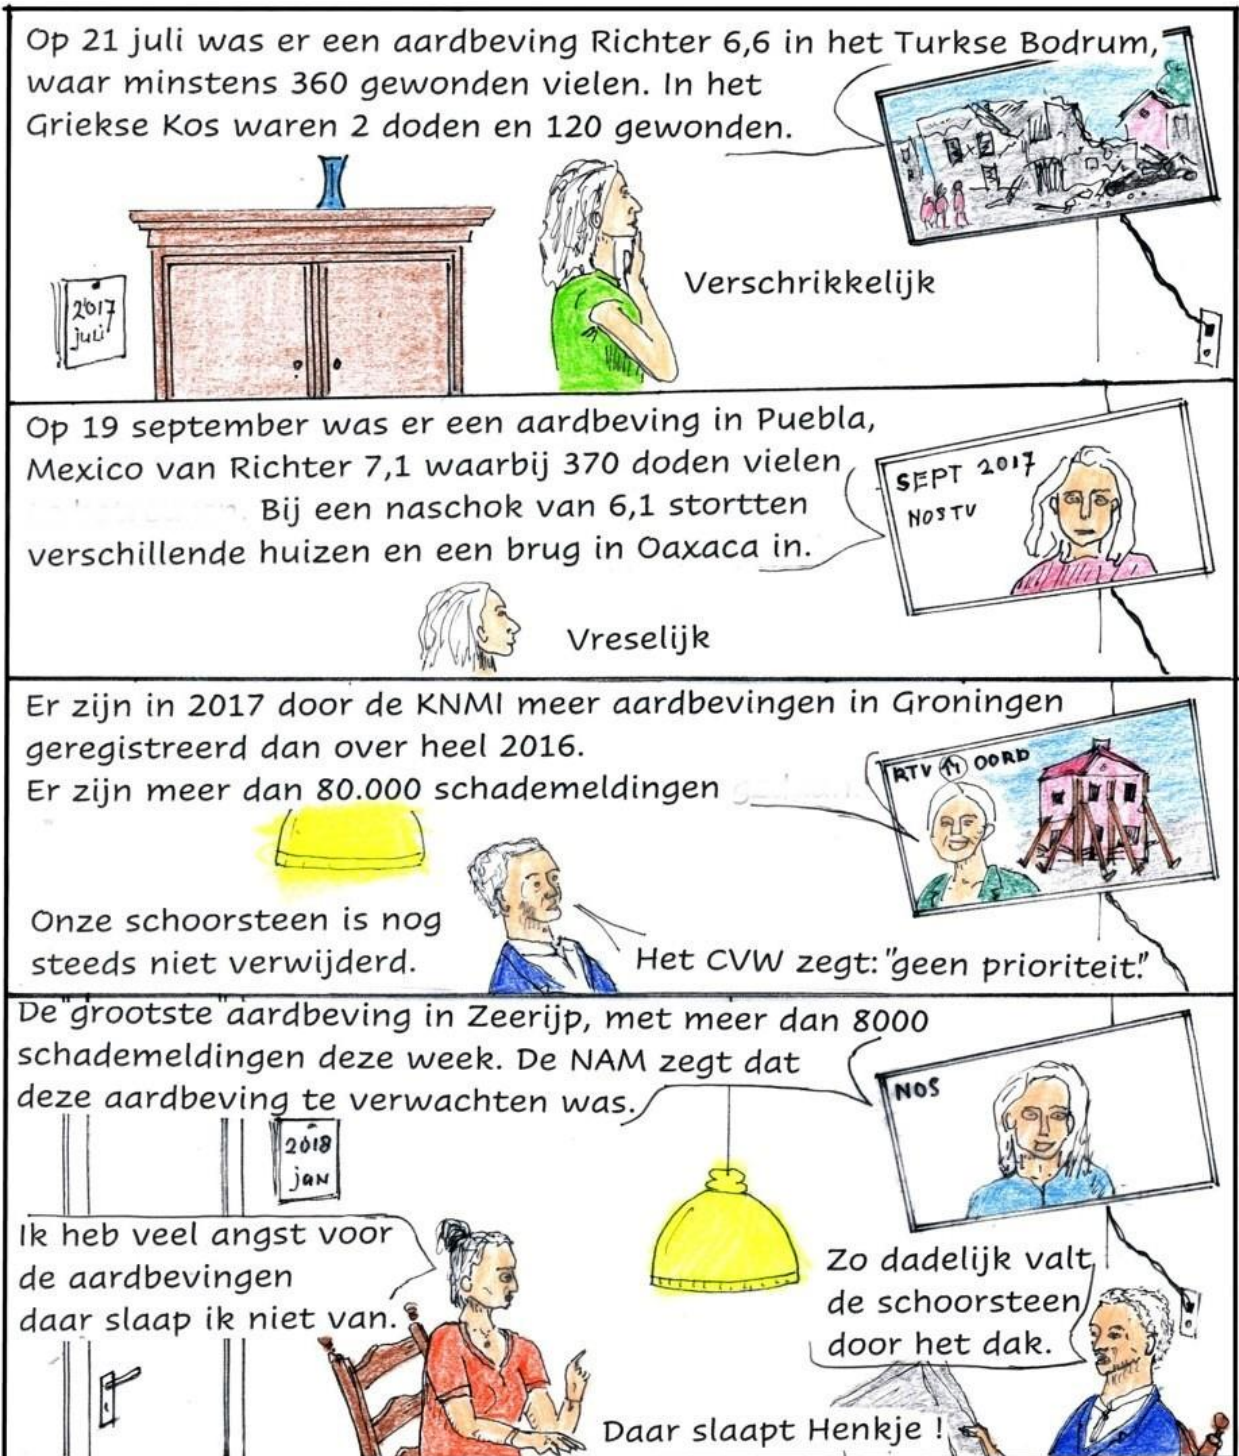 Op 21 juli was er een aardbeving Richter 6,6 in het Turkse Bodrum,
waar minstens 360 gewonden vielen. In het
Griekse Kos waren 2 doden en 120 gewonden.
Verschrikkelijk
2017
juli
Op 19 september was er een aardbeving in Puebla,
Mexico van Richter 7,1 waarbij 370 doden vielen
Bij een naschok van 6,1 stortten
verschillende huizen en een brug in Oaxaca in.
SEPT 2017
NOS TV
Vreselijk
Er zijn in 2017 door de KNMI meer aardbevingen in Groningen
geregistreerd dan over heel 2016.
Er zijn meer dan 80.000 schademeldingen
RTV OORD
Onze schoorsteen is nog
steeds niet verwijderd.
Het CVW zegt: "geen prioriteit."
De "grootste" aardbeving in Zeerijp, met meer dan 8000
schademeldingen deze week. De NAM zegt dat
deze aardbeving te verwachten was.
NOS
2018
jan
Ik heb veel angst voor
de aardbevingen
daar slaap ik niet van.
Zo dadelijk valt
de schoorsteen
door het dak.
Daar slaapt Henkje !